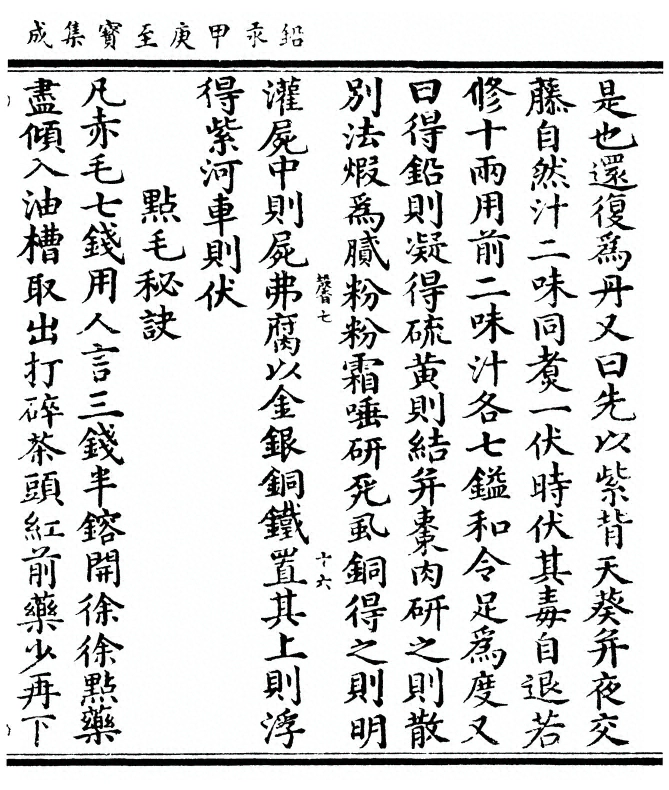 鉛汞甲庚至寶集成
是也還復爲丹又曰先以紫背天葵并夜交
藤自然汁二味同煮一伏時伏其毒自退若
修十兩用前二味汁各七鎰和令足爲度又
曰得鉛則凝得硫黄則結并棗肉研之則散
別法煆爲膩粉粉霜唾研死虱銅得之則明
馨七
十六
灌屍中則屍弗腐以金銀銅鐵置其上則浮
得紫河車則伏
點毛秘訣
凡赤毛七錢用人言三錢半鎔開徐徐點藥
盡傾入油槽取出打碎茶頭紅前藥少再下